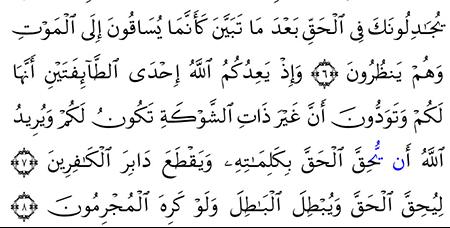 يُجَـٰدِلُونَكَ فِى ٱلْحَقِّ بَعْدَ مَا تَبَيَّنَ كَأَنَّمَا يُسَاقُونَ إِلَى ٱلْمَوْتِ
وَهُمْ يَنظُرُونَ ﴿٦﴾ وَإِذْ يَعِدُكُمُ ٱللَّهُ إِحْدَى ٱلطَّآئِفَتَيْنِ أَنَّهَا
لَكُمْ وَتَوَدُّونَ أَنَّ غَيْرَ ذَاتِ ٱلشَّوْكَةِ تَكُونُ لَكُمْ وَيُرِيدُ
ٱللَّهُ أَن يُحِقَّ ٱلْحَقَّ بِكَلِمَـٰتِهِۦ وَيَقْطَعَ دَابِرَ ٱلْكَـٰفِرِينَ ﴿٧﴾
لِيُحِقَّ ٱلْحَقَّ وَيُبْطِلَ ٱلْبَـٰطِلَ وَلَوْ كَرِهَ ٱلْمُجْرِمُونَ ﴿٨﴾